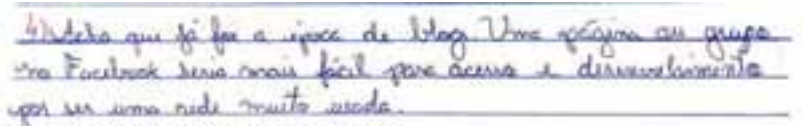 4) Acho que já foi a época de blog. Uma página ou grupo
no Facebook seria mais fácil para acesso e desenvolvimento
por ser uma rede muito usada.